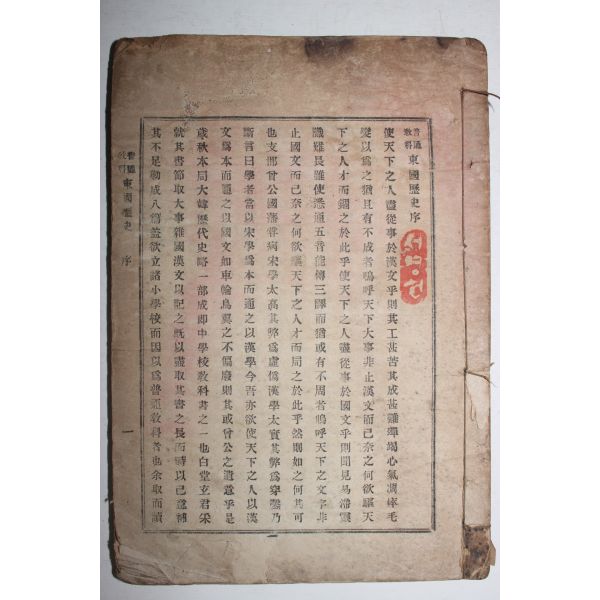 普通敎科東國歷史序
使天下之人盡從事於漢文乎則其工甚苦其成甚難殫竭心氣凋瘁毛
髮以爲之猶且有不成者嗚呼天下大事非止漢文而已奈之何欲驅天
下之人才而錮之於此乎使天下之人盡從事於國文乎則聞見易滯靈
識難長雖使悉通五音能傳三譯而猶或有不周者嗚呼天下之文字非
止國文而已奈之何欲驅天下之人才而局之於此乎然則如之何其可
也支那曾公國藩嘗病宋學太高其弊爲虛僞漢學太實其弊爲穿鑿乃
斷言曰學者當以宋學爲本而通之以漢學今吾亦欲使天下之人以漢
文爲本而通之以國文如車輪鳥翼之不偏廢則其或曾公之遺意乎是
歲秋本局大韓歷代史略一部成卽中學校敎科書之一也白堂玄君采
就其書節取大事雜國漢文以記之旣以盡取其書之長而時以己意補
其不足勒成八篇蓋欲立諸小學校而因以爲普通敎科者也余取而讀
普通敎科東國歷史 序 一